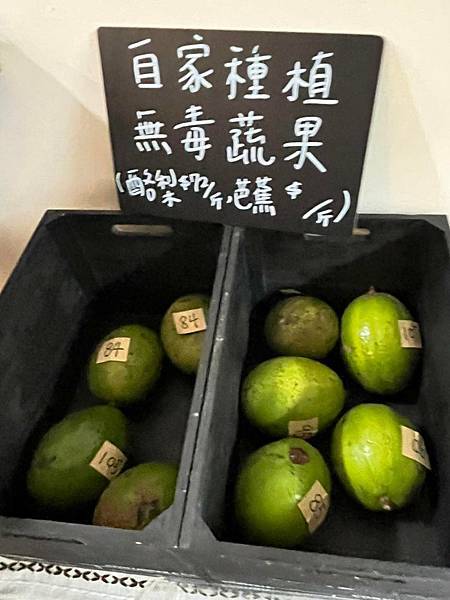 自家種植
無毒蔬果
(酪梨$72/斤、芭蕉$ /斤)
84
84
105